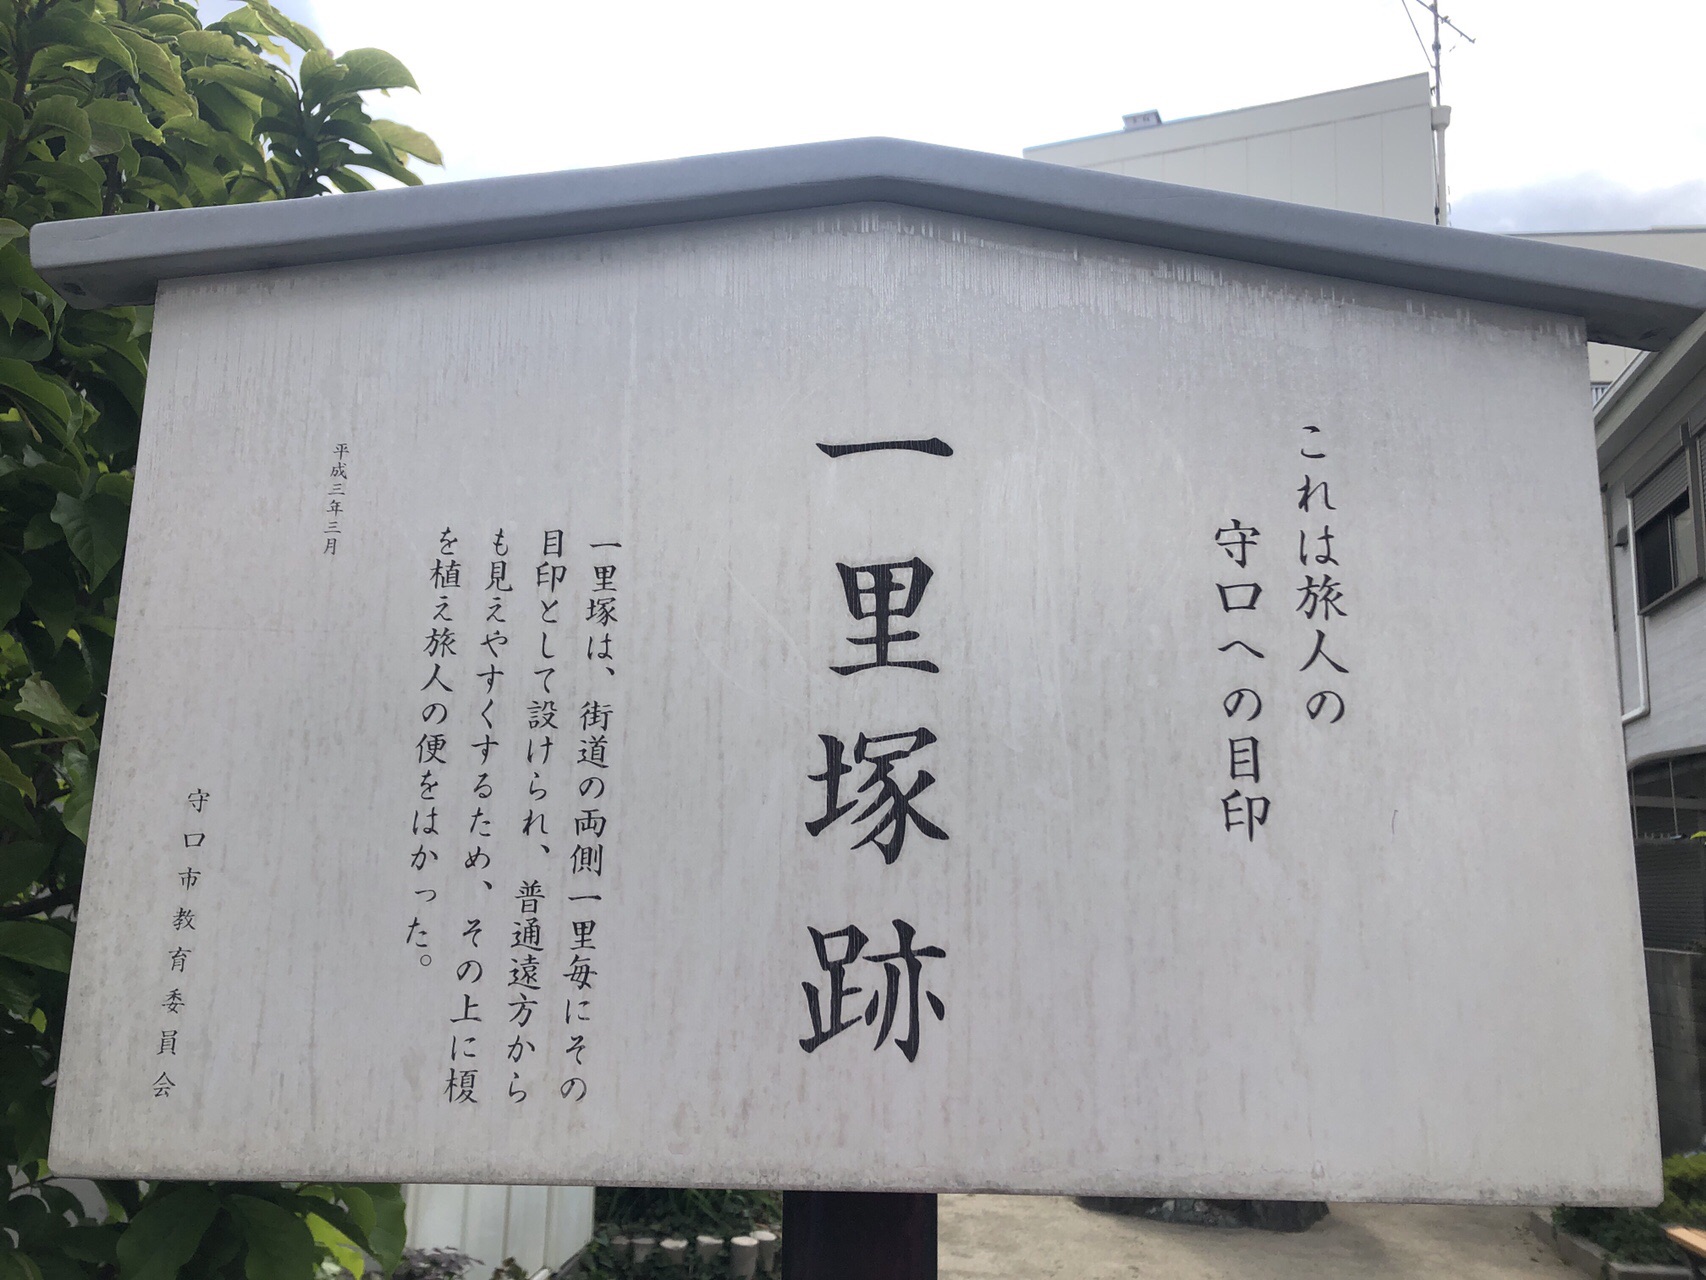 これは旅人の
守口への目印
一里塚跡
一里塚は、街道の両側一里毎にその
目印として設けられ、普通遠方から
も見えやすくするため、その上に榎
を植え旅人の便をはかった。
平成三年三月
守口市教育委員会